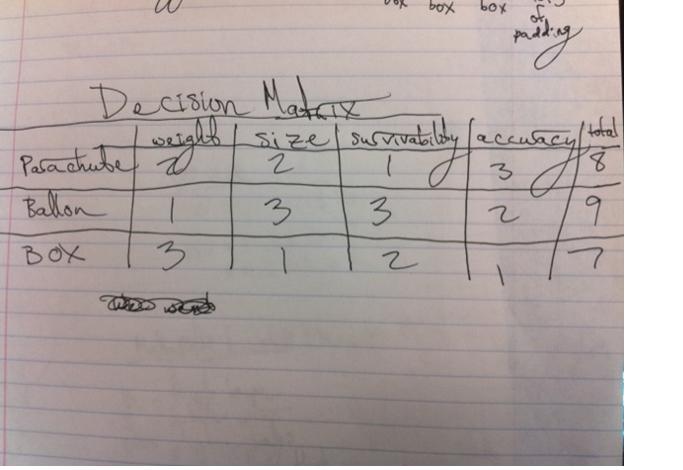 box box box
of
padding
Decision Matrix
weight size survivability accuracy total
Parachute 2 2 1 3 8
Ballon 1 3 3 2 9
BOX 3 1 2 1 7